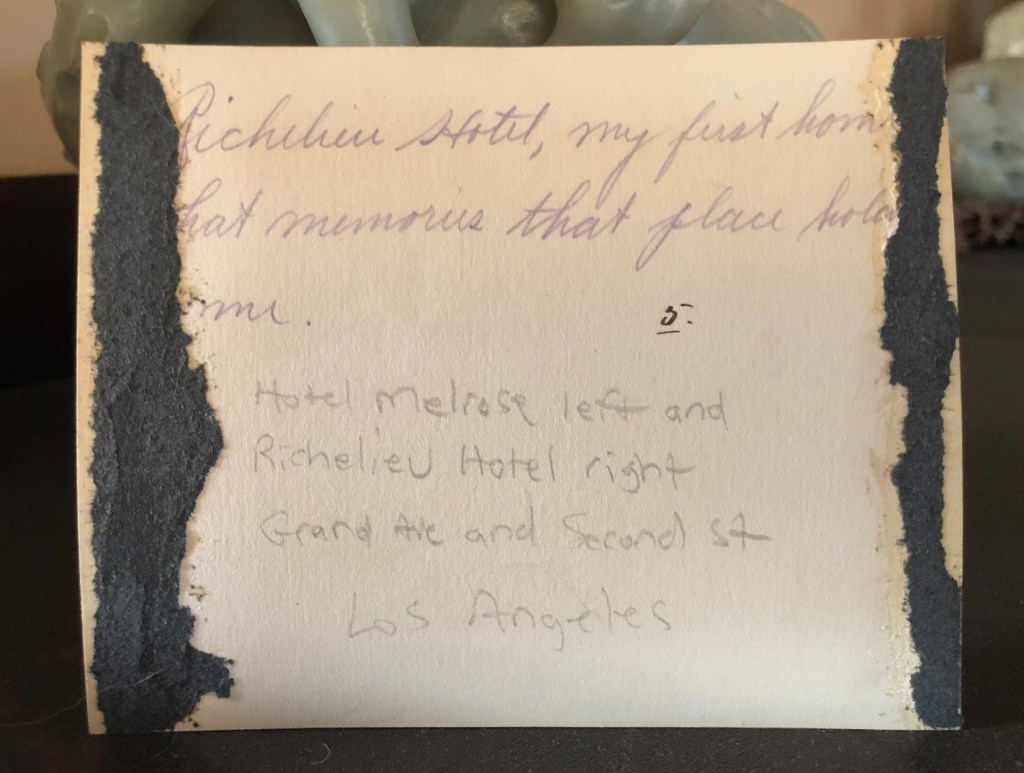 Richelieu Hotel, my first hom
hat memories that place hold
me.
5.
Hotel Melrose left and
Richelieu Hotel right
Grand Ave and Second st
Los Angeles